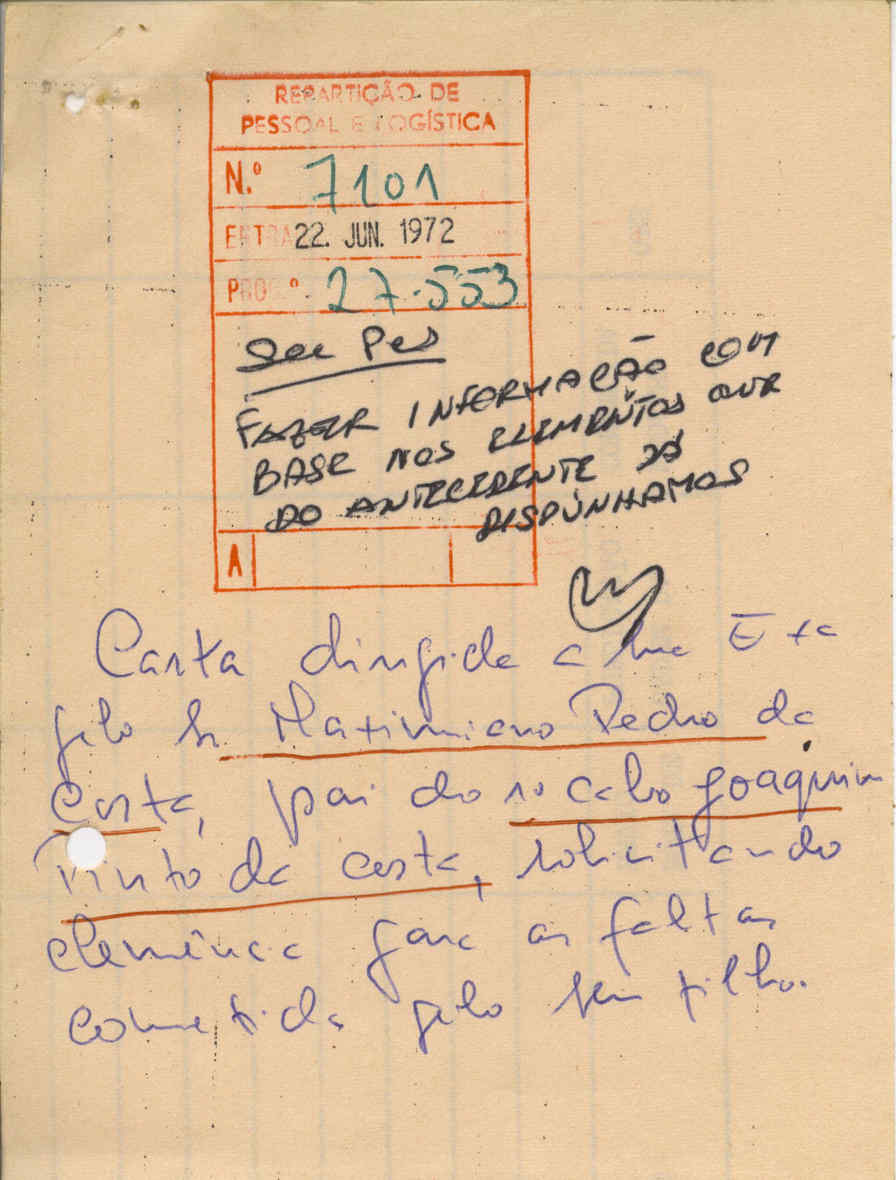 REPARTIÇÃO DE
PESSOAL E LOGÍSTICA
N.º 7101
ENTRA 22. JUN. 1972
PROC.º 27.553
Sec Pes
FAZER INFORMAÇÃO COM
BASE NOS ELEMENTOS QUE
DO ANTECEDENTE JÁ
DISPÚNHAMOS
A
Carta dirigida a Sua Exa
pelo Sr. Maximiano Pedro da
Costa, pai do 1º cabo Joaquim
Pinto da Costa, solicitando
clemência para as faltas
cometidas pelo seu filho.